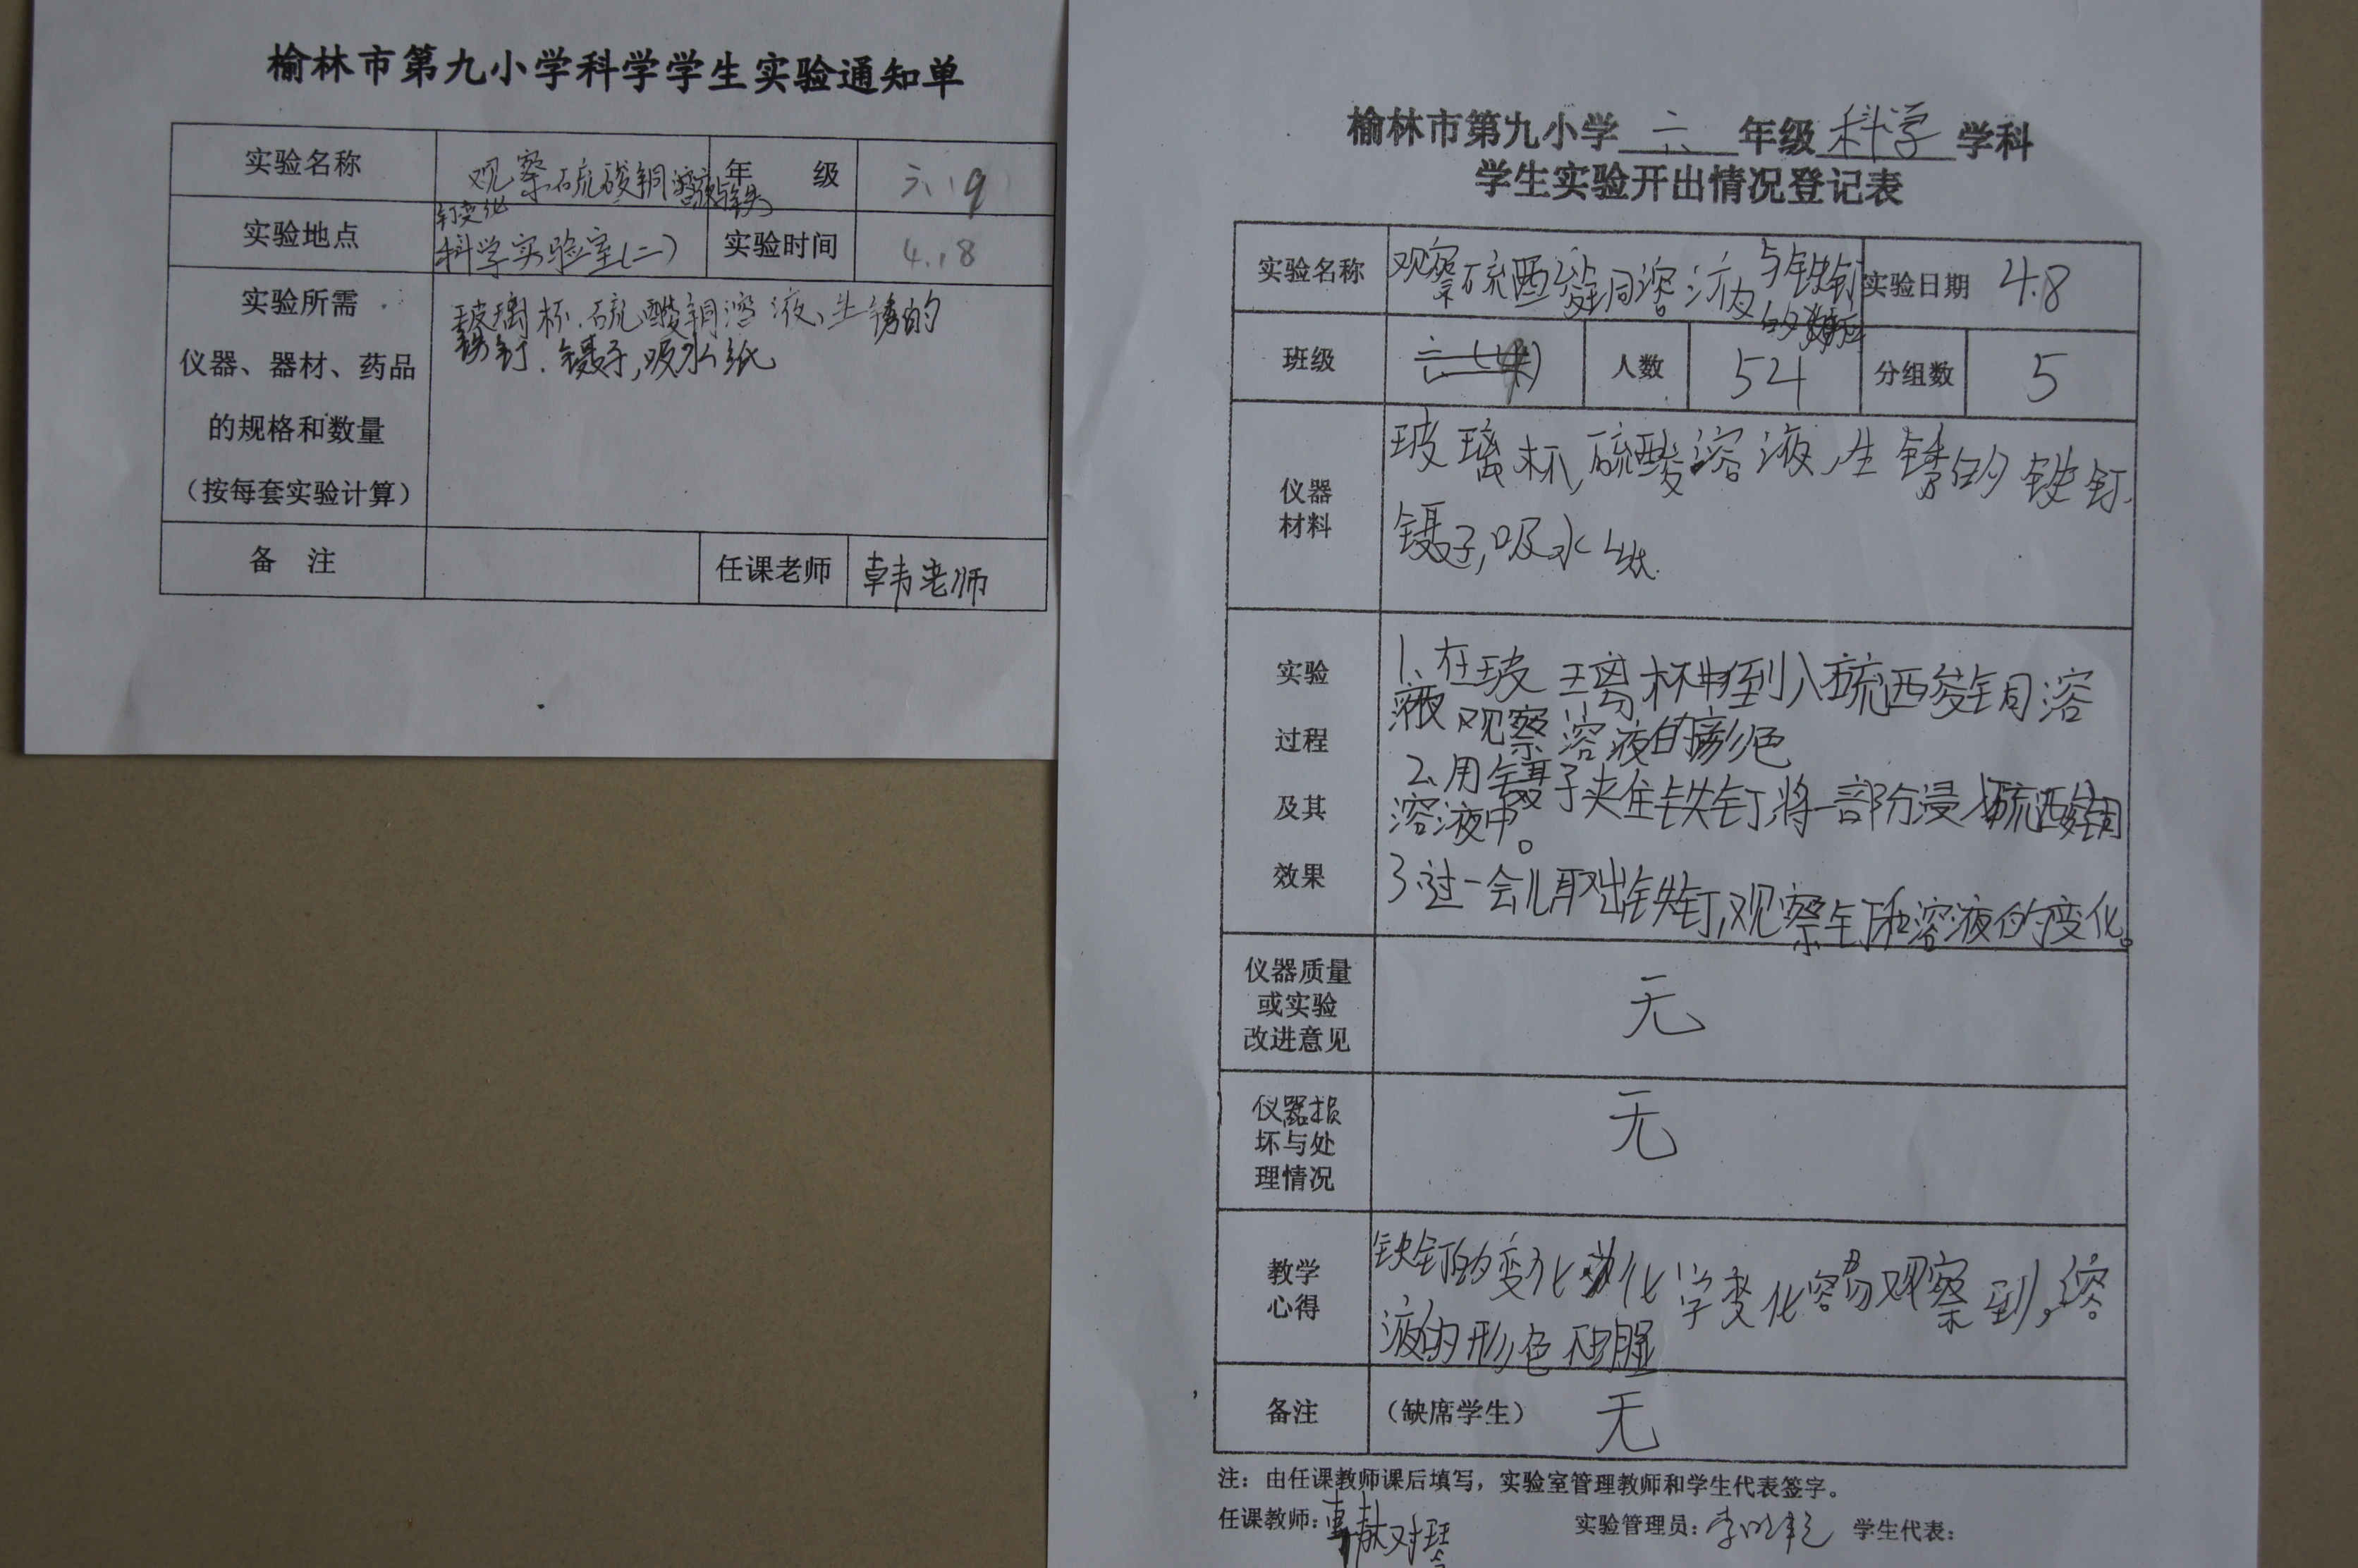 榆林市第九小学科学学生实验通知单
实验名称 观察硫酸铜溶液与铁钉变化 年 级 六.9
实验地点 科学实验室(二) 实验时间 4.8
实验所需
仪器、器材、药品
的规格和数量
(按每套实验计算)
玻璃杯、硫酸铜溶液、生锈的
铁钉、镊子,吸水纸
备 注 任课老师 韩老师
榆林市第九小学 六 年级 科学 学科
学生实验开出情况登记表
实验名称 观察硫酸铜溶液与铁钉的 实验日期 4.8
班级 六 人数 54 分组数 5
仪器
材料
玻璃杯,硫酸溶液,生锈的铁钉、
镊子,吸水纸.
实验
过程
及其
效果
1、在玻璃杯中到入硫酸铜溶
液观察溶液的彭色
2、用镊子夹住铁钉,将一部分浸入硫酸铜
溶液中。
3.过一会儿取出铁钉,观察钉和溶液的变化。
仪器质量
或实验
改进意见
无
仪器损
坏与处
理情况
无
教学
心得
铁钉的变化 化学变化容易观察到,溶
液的形色不明显
备注 (缺席学生) 无
注:由任课教师课后填写,实验室管理教师和学生代表签字。
任课教师: 实验管理员: 学生代表: